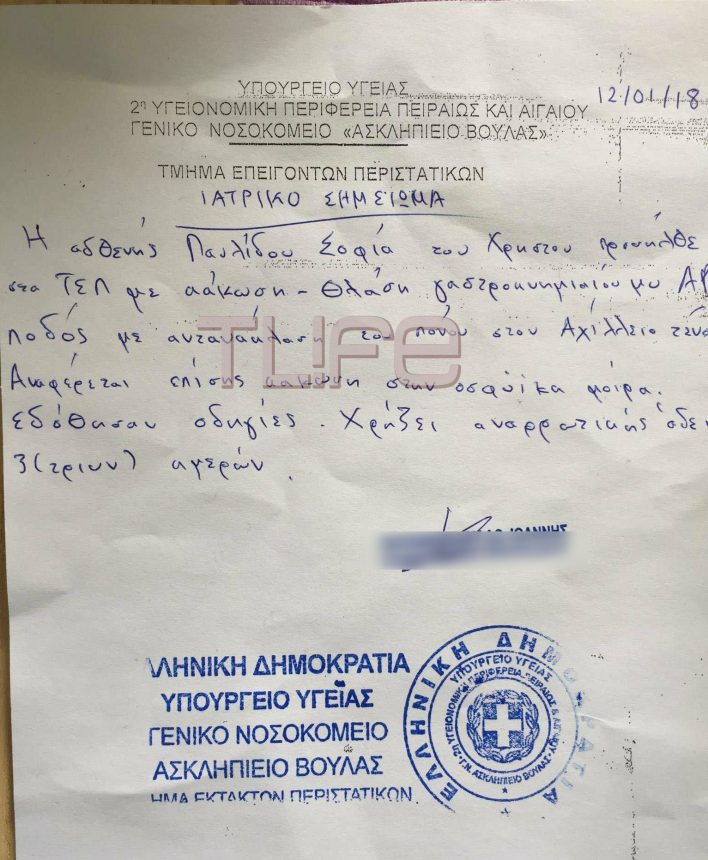 12/01/18
ΥΠΟΥΡΓΕΙΟ ΥΓΕΙΑΣ
2η ΥΓΕΙΟΝΟΜΙΚΗ ΠΕΡΙΦΕΡΕΙΑ ΠΕΙΡΑΙΩΣ ΚΑΙ ΑΙΓΑΙΟΥ
ΓΕΝΙΚΟ ΝΟΣΟΚΟΜΕΙΟ «ΑΣΚΛΗΠΙΕΙΟ ΒΟΥΛΑΣ»
ΤΜΗΜΑ ΕΠΕΙΓΟΝΤΩΝ ΠΕΡΙΣΤΑΤΙΚΩΝ
ΙΑΤΡΙΚΟ ΣΗΜΕΙΩΜΑ
Η ασθενής Παυλίδου Σοφία του Χρηστου προσήλθε
στα ΤΕΠ με κάκωση - θλάση γαστροκνημιαίου μυ ΑΡ
ποδός με αντανάκλαση του πόνου στον Αχίλλειο τένο
TLIFE
Αναφέρεται επίσης κάκωση στην οσφυϊκα μοίρα.
Εδόθησαν οδηγίες. Χρήζει αναρρωτικής άδει
3 (τριων) ημερών.
ΙΩΑΝΝΗΣ
ΛΗΝΙΚΗ ΔΗΜΟΚΡΑΤΙΑ
ΥΠΟΥΡΓΕΙΟ ΥΓΕΙΑΣ
ΓΕΝΙΚΟ ΝΟΣΟΚΟΜΕΙΟ
ΑΣΚΛΗΠΙΕΙΟ ΒΟΥΛΑΣ
ΗΜΑ ΕΚΤΑΚΤΩΝ ΠΕΡΙΣΤΑΤΙΚΩΝ
ΕΛΛΗΝΙΚΗ ΔΗΜΟΚΡΑΤΙΑ
ΥΠΟΥΡΓΕΙΟ ΥΓΕΙΑΣ
2η ΥΓΕΙΟΝΟΜΙΚΗ ΠΕΡΙΦΕΡΕΙΑ ΠΕΙΡΑΙΩΣ & ΑΙΓΑΙΟΥ
Γ.Ν. ΑΣΚΛΗΠΙΕΙΟ ΒΟΥΛΑΣ